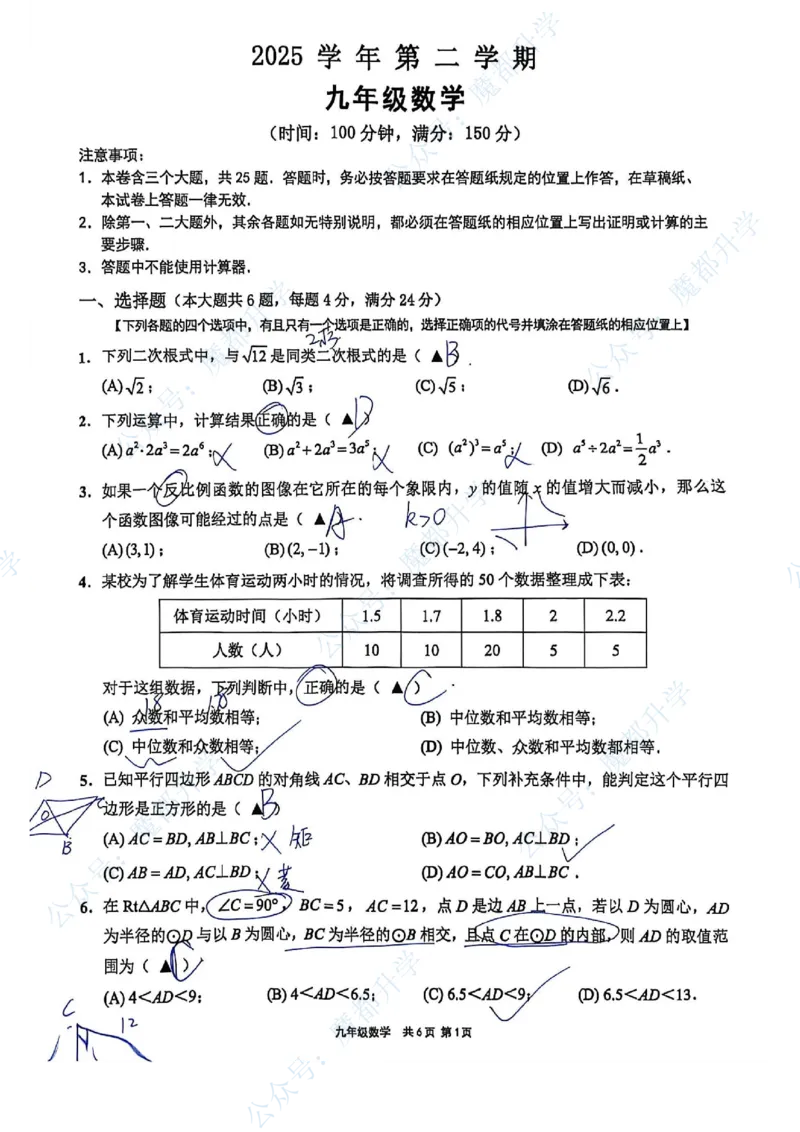 2025 学年第二学期
九年级数学
（时间：100分钟，满分：150分）
注意事项：
1．本卷含三个大题，共25题．答题时，务必按答题要求在答题纸规定的位置上作答，在草稿纸、
本试卷上答题一律无效．
2．除第一、二大题外，其余各题如无特别说明，都必须在答题纸的相应位置上写出证明或计算的主
要步骤．
3．答题中不能使用计算器．
一、选择题（本大题共6题，每题4分，满分24分）
【下列各题的四个选项中，有且只有一个选项是正确的，选择正确项的代号并填涂在答题纸的相应位置上】
2√3
1．下列二次根式中，与√12是同类二次根式的是（ ▲ ）． B
(A) √2； (B) √3； (C) √5； (D) √6．
2．下列运算中，计算结果正确的是（ ▲ ） D
(A) a²·2a³=2a⁶； (B) a²+2a³=3a⁵； (C) (a²)³=a⁵； (D) a⁵÷2a²=1/2a³．
3．如果一个反比例函数的图像在它所在的每个象限内，y的值随x的值增大而减小，那么这
个函数图像可能经过的点是（ ▲ ）． A k>0
(A) (3,1)； (B) (2,−1)； (C) (−2,4)； (D) (0,0)．
4．某校为了解学生体育运动两小时的情况，将调查所得的50个数据整理成下表：
体育运动时间（小时） 1.5 1.7 1.8 2 2.2
人数（人） 10 10 20 5 5
对于这组数据，下列判断中，正确的是（ ▲ ）． C
1.8
(A) 众数和平均数相等； (B) 中位数和平均数相等；
(C) 中位数和众数相等； (D) 中位数、众数和平均数都相等．
5．已知平行四边形ABCD的对角线AC、BD相交于点O，下列补充条件中，能判定这个平行四
边形是正方形的是（ ▲ ） B
D C O B
(A) AC=BD, AB⊥BC； 矩 (B) AO=BO, AC⊥BD；
(C) AB=AD, AC⊥BD； 菱 (D) AO=CO, AB⊥BC．
6．在Rt△ABC中，∠C=90°，BC=5，AC=12，点D是边AB上一点，若以D为圆心，AD
为半径的⊙D与以B为圆心，BC为半径的⊙B相交，且点C在⊙D的内部，则AD的取值范
围为（ ▲ ）
(A) 4<AD<9； (B) 4<AD<6.5； (C) 6.5<AD<9； (D) 6.5<AD<13．
C 12
九年级数学 共6页 第1页
公众号：魔都升学